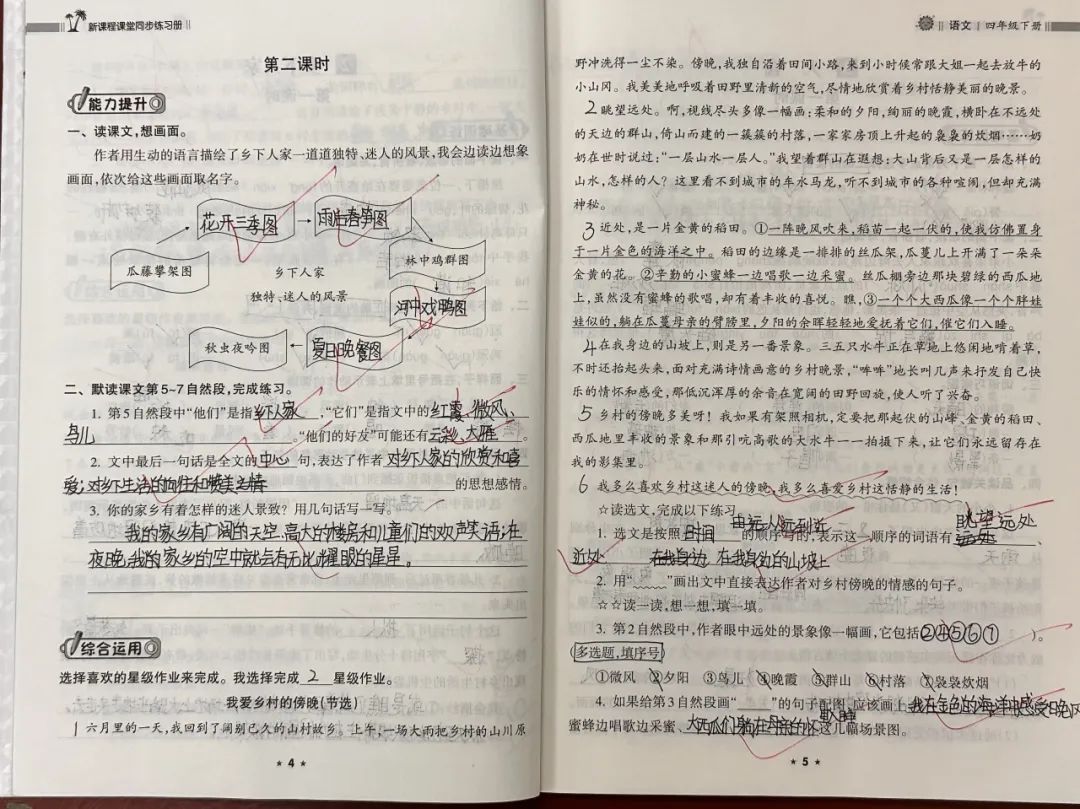 新课程课堂同步练习册
第二课时
能力提升
一、读课文,想画面。
作者用生动的语言描绘了乡下人家一道道独特、迷人的风景,我会边读边想象
画面,依次给这些画面取名字。
花开三季图
雨后春笋图
瓜藤攀架图
乡下人家
林中鸡群图
独特、迷人的风景
河中戏鸭图
秋虫夜吟图
夏日晚餐图
二、默读课文第5~7自然段,完成练习。
1. 第5自然段中“他们”是指乡下人家,“它们”是指文中的红霞、微风、
鸟儿。“他们的好友”可能还有云彩、大雁。
2. 文中最后一句话是全文的中心句,表达了作者对乡下人家的欣赏和喜
爱;对乡下生活的向往和赞美之情的思想感情。
3. 你的家乡有着怎样的迷人景致?用几句话写一写。
我的家乡有广阔的天空、高大的楼房和儿童们的欢声笑语;在
夜晚,我的家乡的空中就会有无比耀眼的星星。
综合运用
选择喜欢的星级作业来完成。我选择完成2星级作业。
我爱乡村的傍晚(节选)
1 六月里的一天,我回到了阔别已久的山村故乡。上午,一场大雨把乡村的山川原
★ 4 ★
语文 四年级下册
野冲洗得一尘不染。傍晚,我独自沿着田间小路,来到小时候常跟大姐一起去放牛的
小山冈。我美美地呼吸着田野里清新的空气,尽情地欣赏着乡村恬静美丽的晚景。
2 眺望远处。啊,视线尽头多像一幅画:柔和的夕阳,绚丽的晚霞,横卧在不远处
的天边的群山,倚山而建的一簇簇的村落,一家家房顶上升起的袅袅的炊烟……奶
奶在世时说过:“一层山水一层人。”我望着群山在遐想:大山背后又是一层怎样的
山水,怎样的人?这里看不到城市的车水马龙,听不到城市的各种喧闹,但却充满
神秘。
3 近处,是一片金黄的稻田。①一阵晚风吹来,稻苗一起一伏的,使我仿佛置身
于一片金色的海洋之中。稻田的边缘是一排排的丝瓜架,瓜蔓儿上开满了一朵朵
金黄的花。②辛勤的小蜜蜂一边唱歌一边采蜜。丝瓜棚旁边那块碧绿的西瓜地
上,虽然没有蜜蜂的歌唱,却有着丰收的喜悦。瞧,③一个个大西瓜像一个个胖娃
娃似的,躺在瓜蔓母亲的臂膀里,夕阳的余晖轻轻地爱抚着它们,催它们入睡。
4 在我身边的山坡上,则是另一番景象。三五只水牛正在草地上悠闲地啃着草,
不时还抬起头来,面对充满诗情画意的乡村晚景,“哞哞”地长叫几声来抒发自己快
乐的情怀和感受,那低沉浑厚的余音在宽阔的田野回旋,使人听了兴奋。
5 乡村的傍晚多美呀!我如果有架照相机,定要把那起伏的山峰、金黄的稻田、
西瓜地里丰收的景象和那引吭高歌的大水牛一一拍摄下来,让它们永远留存在
我的影集里。
6 我多么喜欢乡村这迷人的傍晚,我多么喜爱乡村这恬静的生活!
☆读选文,完成以下练习。
由远及近
眺望远处
1. 选文是按照时间的顺序写的,表示这一顺序的词语有远处、
近处 在我身边 在我身边的山坡上
2. 用“﹏﹏”画出文中直接表达作者对乡村傍晚的情感的句子。
☆☆读一读,想一想,填一填。
3. 第2自然段中,作者眼中远处的景象像一幅画,它包括②④⑤⑥⑦)。
(多选题,填序号)
①微风 ②夕阳 ③鸟儿 ④晚霞 ⑤群山 ⑥村落 ⑦袅袅炊烟
4. 如果给第3自然段画“____”的句子配图,应该画上我在金色的海洋中感受晚风、
蜜蜂边唱歌边采蜜、大西瓜们躺在母亲的怀这几幅场景图。
★ 5 ★